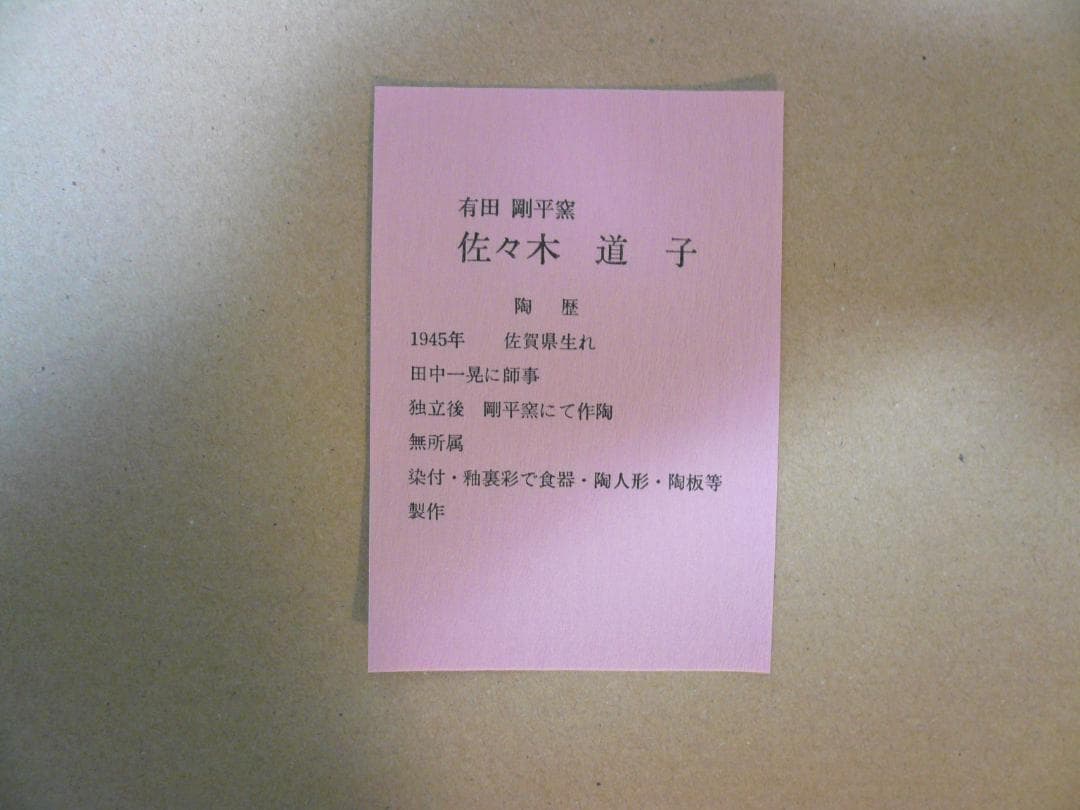 有田 剛平窯
佐々木 道 子
陶 歴
1945年 佐賀県生れ
田中一晃に師事
独立後 剛平窯にて作陶
無所属
染付・釉裏彩で食器・陶人形・陶板等
製作